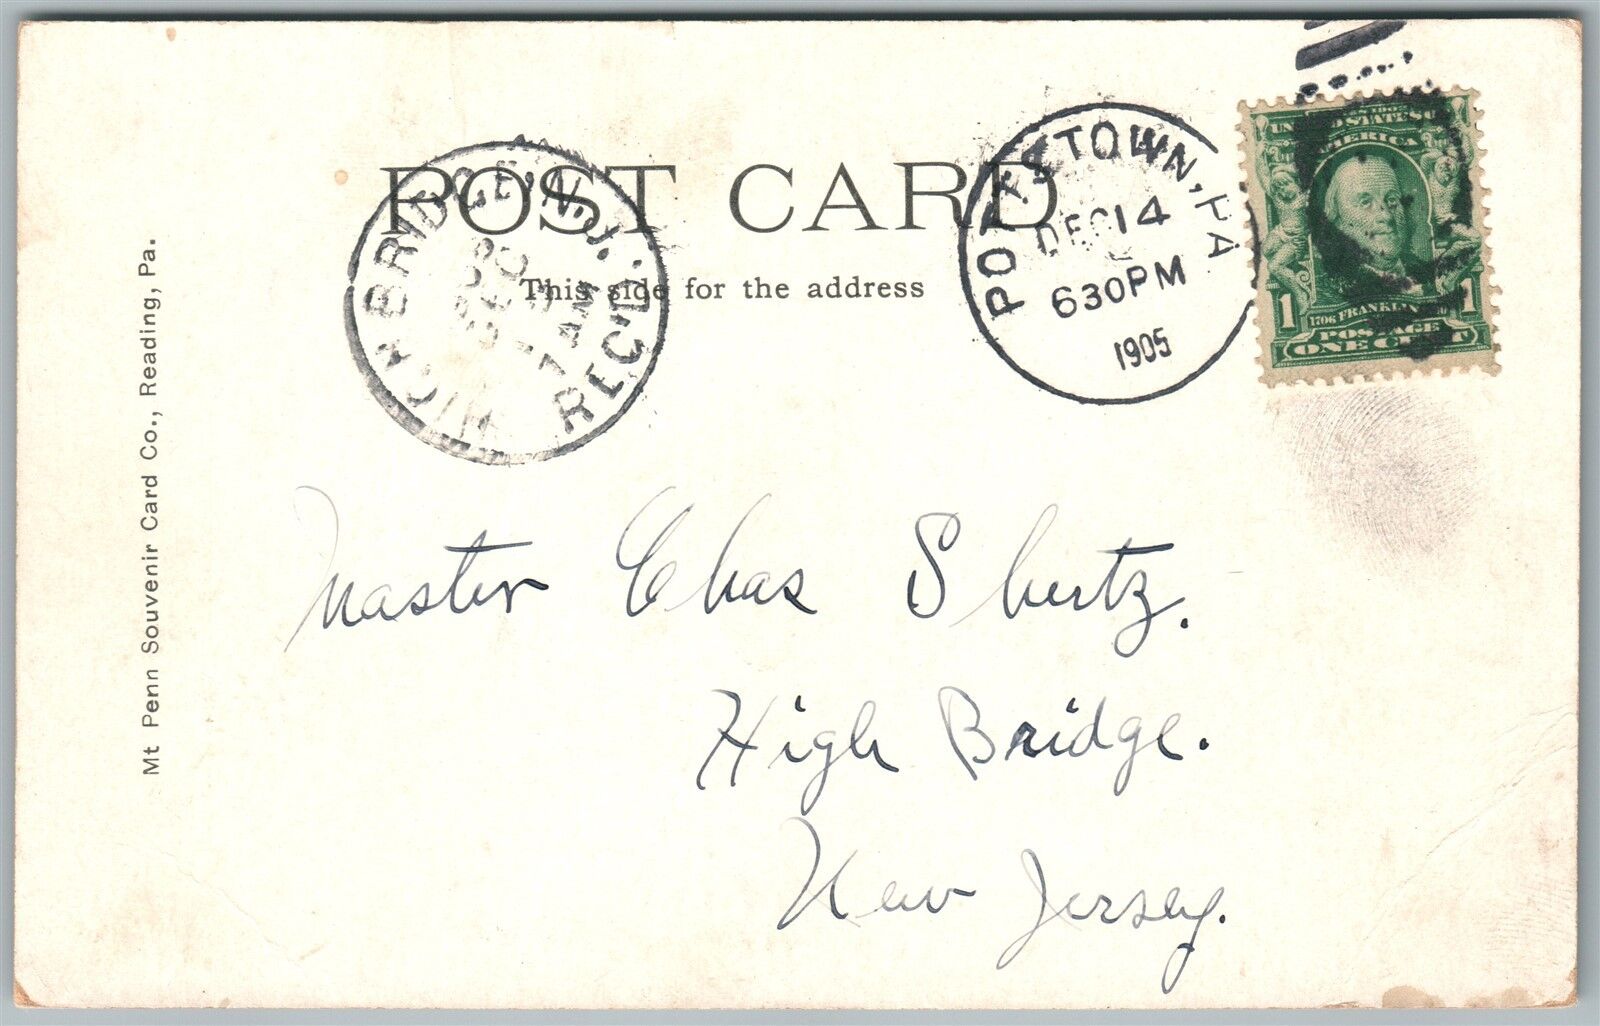 POST CARD
This side for the address
HIGH BRIDGE, N.J.
1905
DEC
7 AM
REC'D.
POTTSTOWN, PA
DEC 14
630PM
1905
UNITED STATES OF AMERICA
1 1706 FRANKLIN 1
POSTAGE
ONE CENT
Master Chas Shertz.
High Bridge.
New Jersey.
Mt Penn Souvenir Card Co., Reading, Pa.